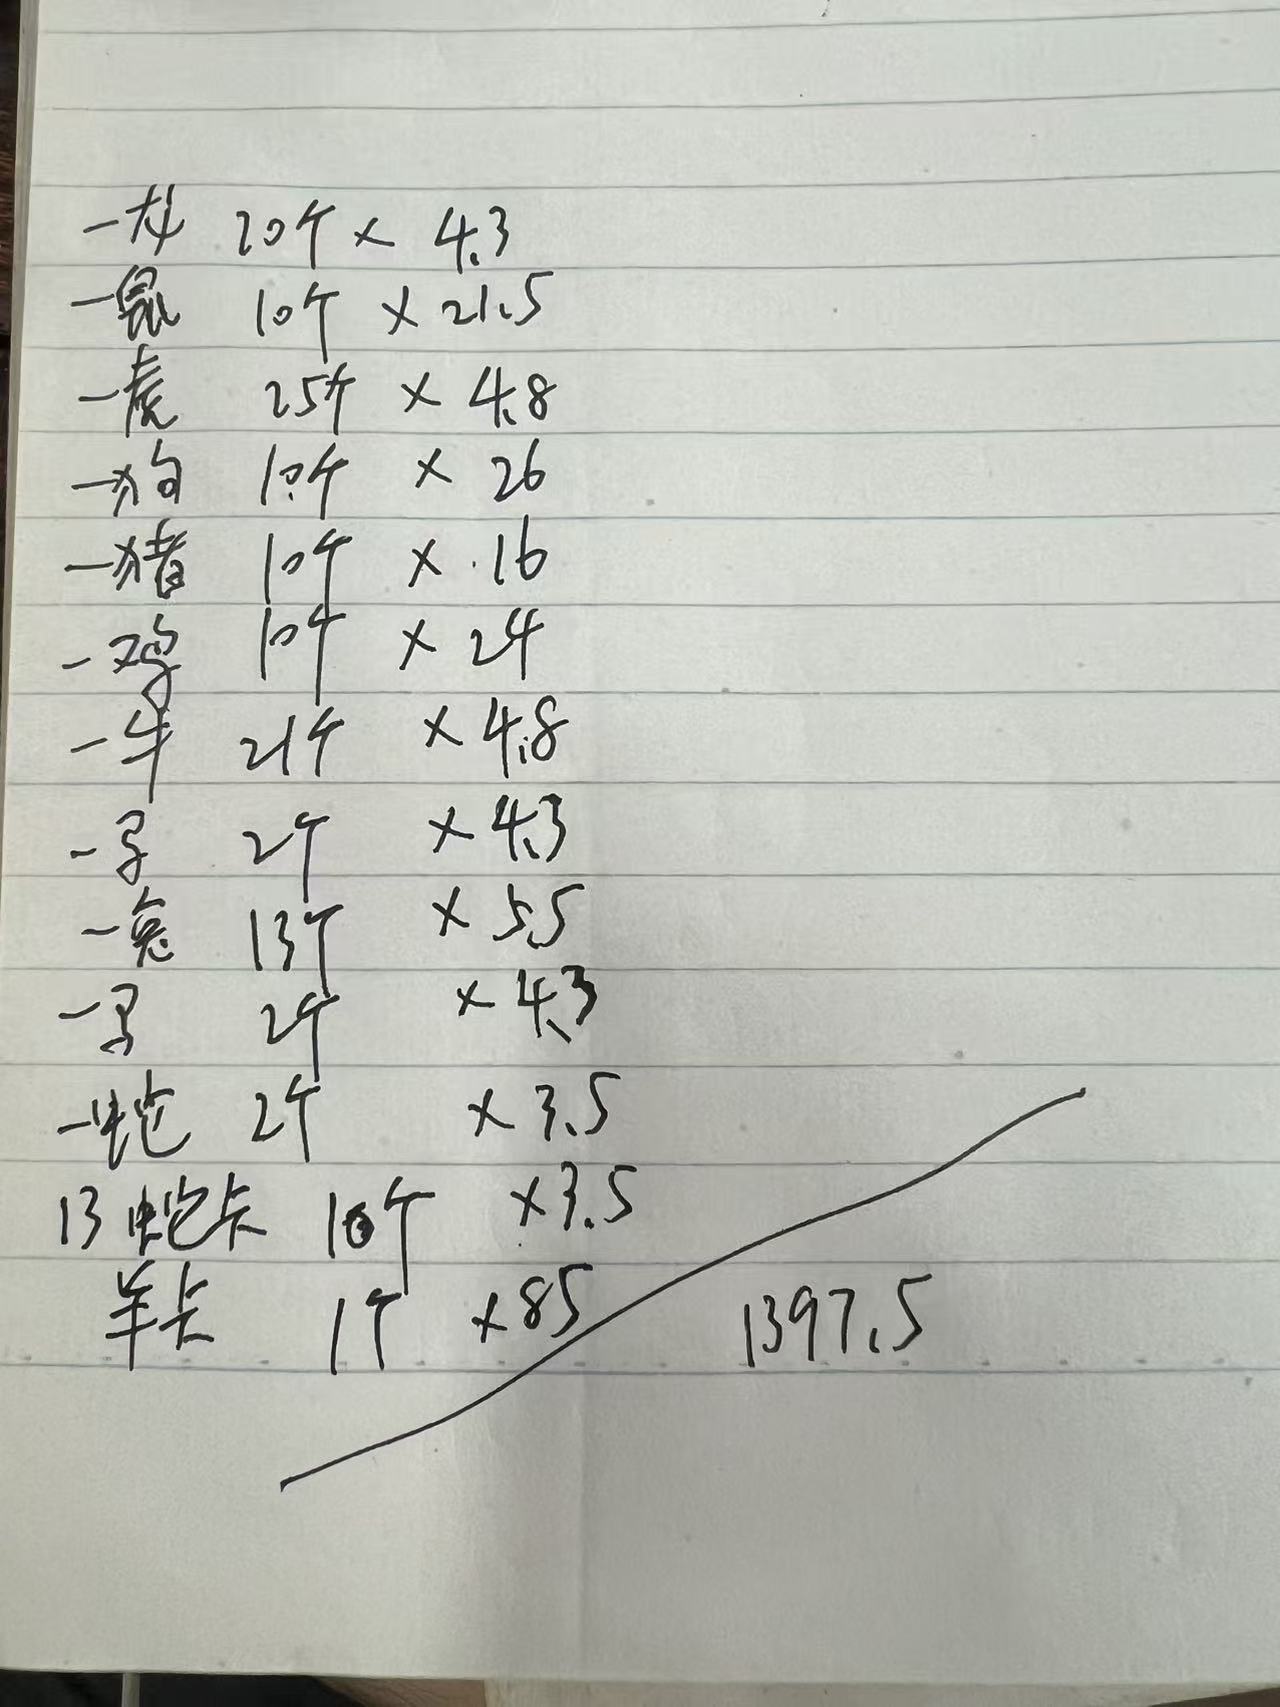 一龙 20个 × 4.3
一鼠 10个 × 21.5
一虎 25个 × 4.8
一狗 10个 × 26
一猪 10个 × 16
一鸡 10个 × 24
一牛 21个 × 4.8
一马 2个 × 4.3
一兔 13个 × 5.5
一马 2个 × 4.3
一蛇 2个 × 3.5
13蛇卡 10个 ×3.5
羊卡 1个 ×85 1397.5